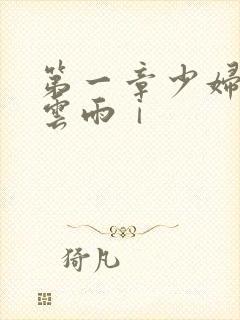 第一章少婦
雲雨1
猗凡